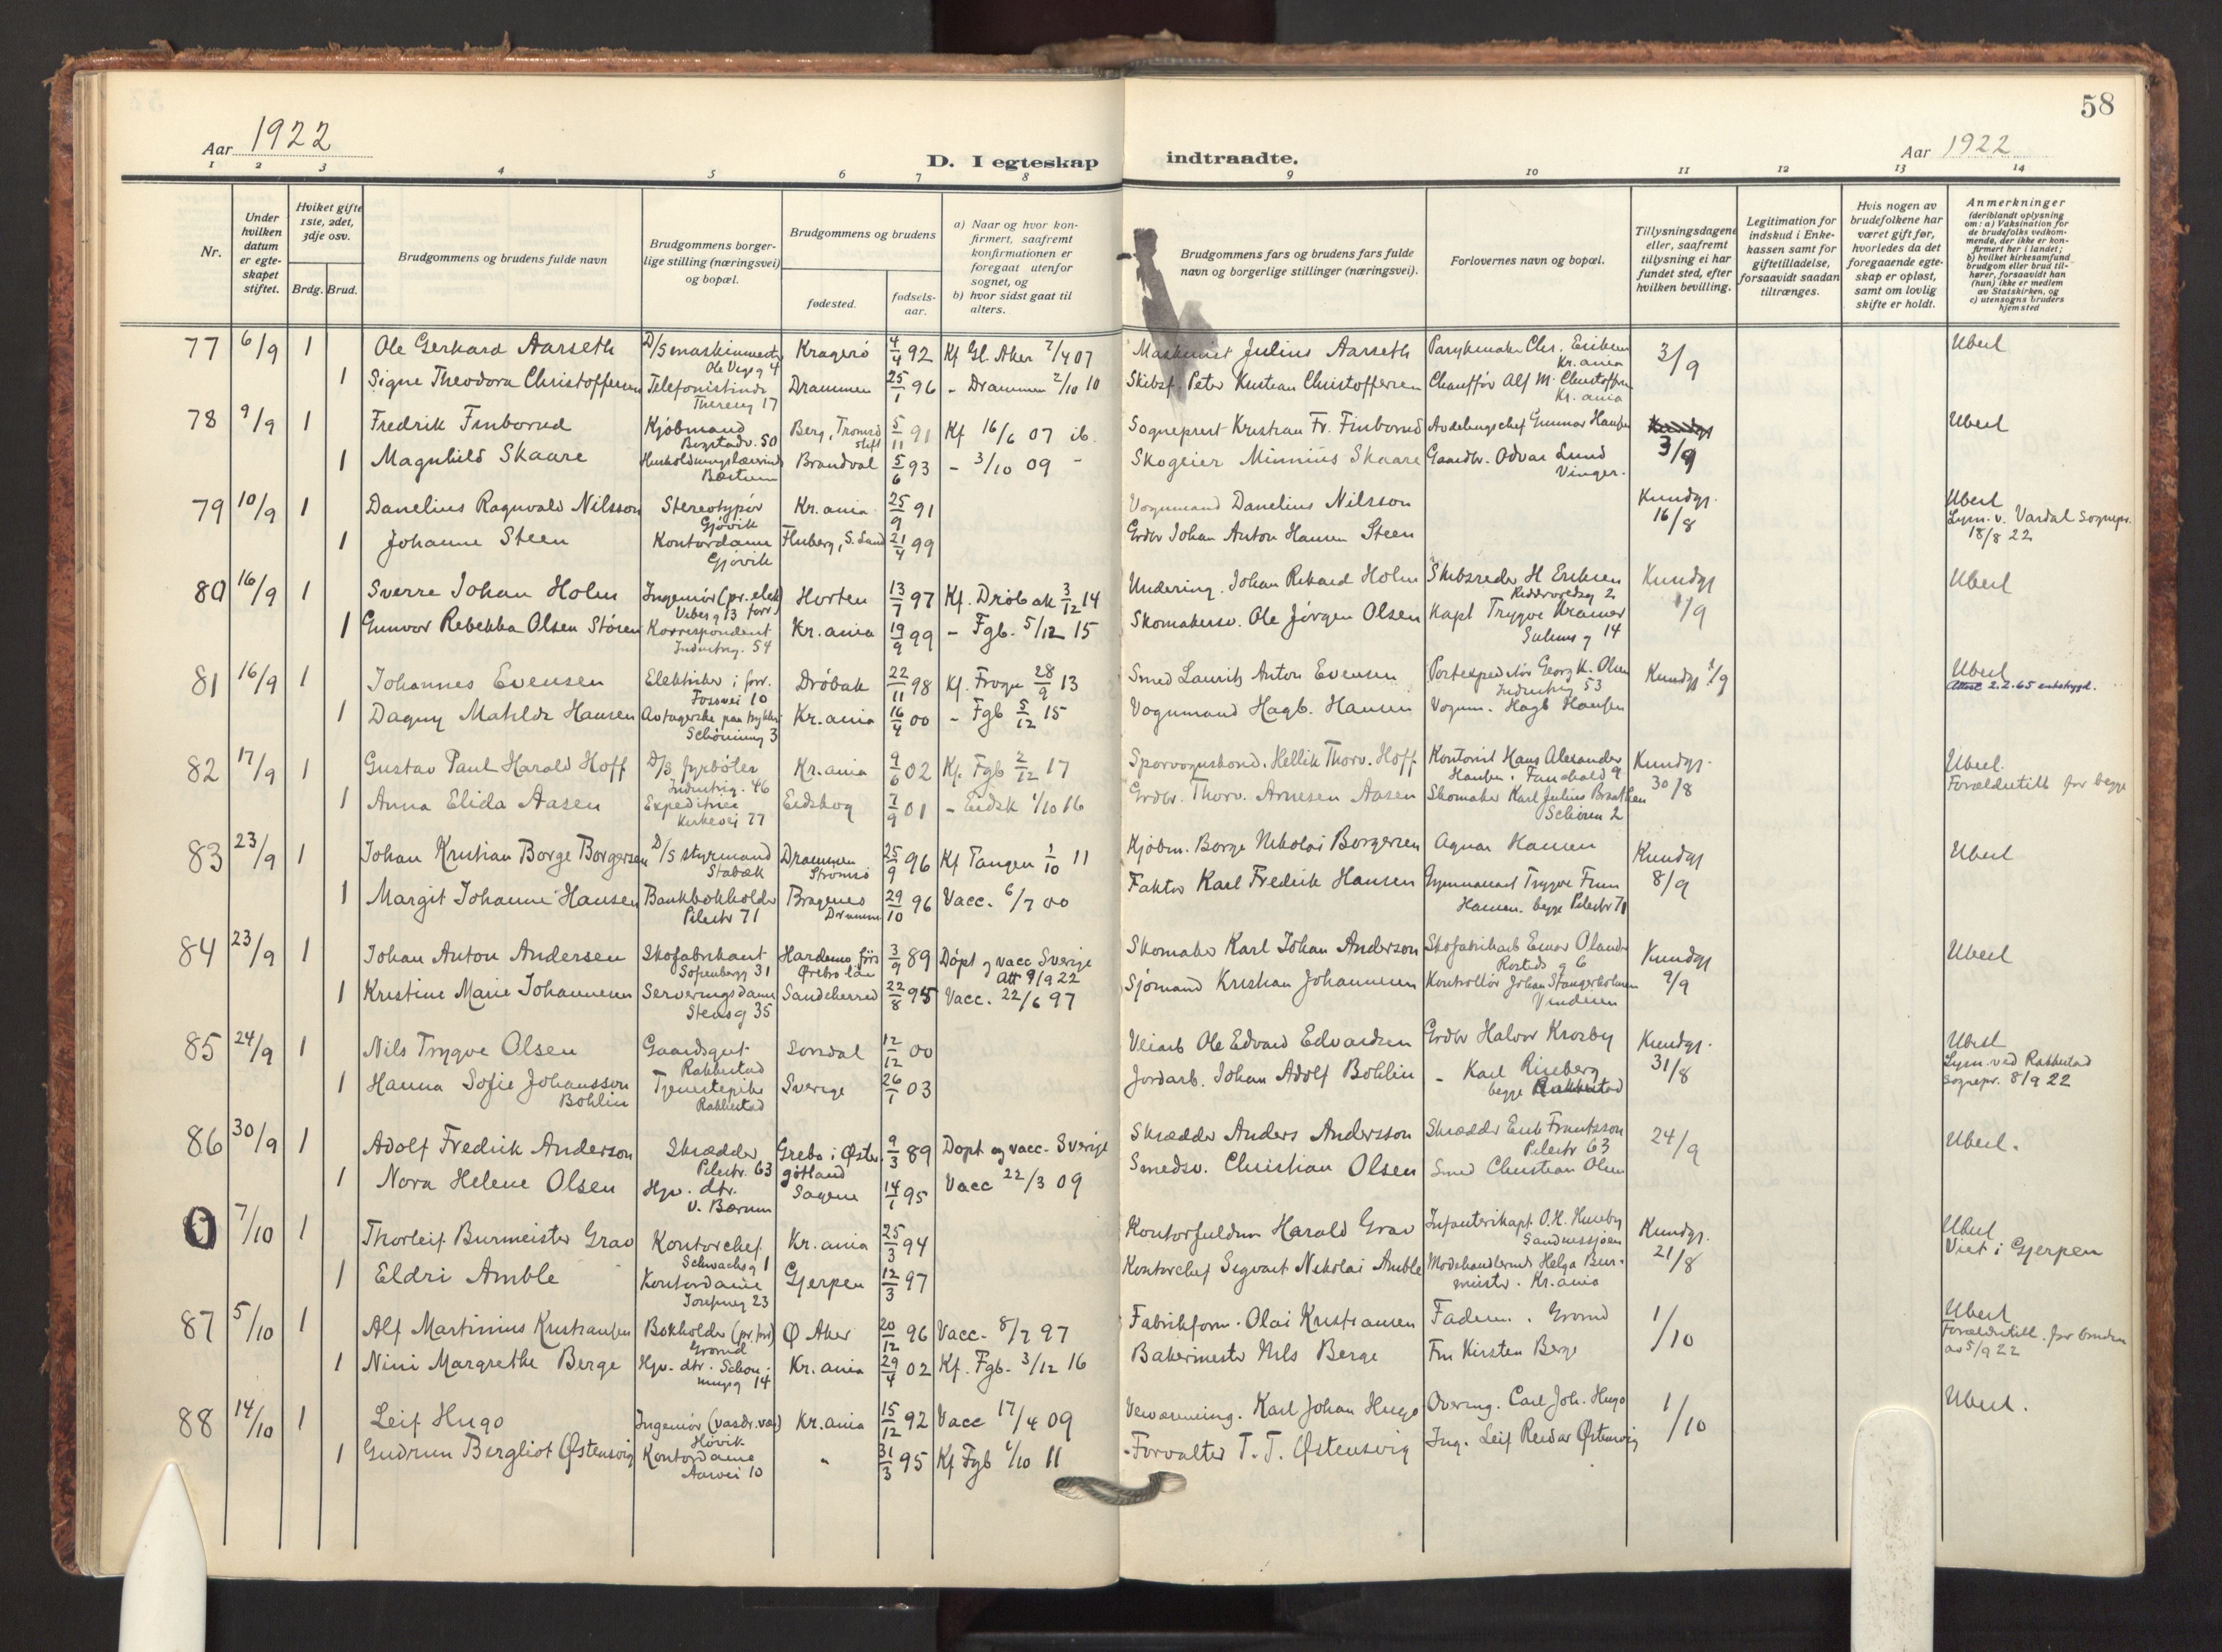 58
Aar 1922
D. I egteskap indtraadte.
Aar 1922
1 2 3 4 5 6 7 8 9 10 11 12 13 14
Nr.
Under hvilken datum er egteskapet stiftet.
Hvilket gifte 1ste, 2det, 3dje osv.
Brdg. Brud.
Brudgommens og brudens fulde navn
Brudgommens borgerlige stilling (næringsvei) og bopæl.
Brudgommens og brudens
fødested.
fødselsaar.
a) Naar og hvor konfirmert, saafremt konfirmationen er foregaat utenfor sognet, og
b) hvor sidst gaat til alters.
Brudgommens fars og brudens fars fulde navn og borgerlige stillinger (næringsvei).
Forlovernes navn og bopæl.
Tillysningsdagene eller, saafremt tillysning ei har fundet sted, efter hvilken bevilling.
Legitimation for indskud i Enkekassen samt for giftetilladelse, forsaavidt saadan tiltrænges.
Hvis nogen av brudefolkene har været gift før, hvorledes da det foregaaende egteskap er opløst, samt om lovlig skifte er holdt.
Anmerkninger
(deriblandt oplysning om: a) Vaksination for de brudefolks vedkommende, der ikke er konfirmert her i landet; b) hvilket kirkesamfund brudgom eller brud tilhører, forsaavidt han (hun) ikke er medlem av Statskirken, og c) utensogns bruders hjemsted
77 6/9 1 Ole Gerhard Aarseth D/S maskinmester Kragerø 4/4 92 Kf Gl. Aker 7/4 07 Maskinist Julius Aarseth Parykmaker Chr. Eriksen 3/9 Uberl
Ole Vigs g 4 Kr.ania
1 Signe Theodora Christoffersen Telefonistinde Drammen 25/1 96 - Drammen 2/10 10 Skibsf. Peter Kristian Christoffersen Chauffør Alf M. Christoffersen
Thereseg 17 Kr. ania
78 9/9 1 Fredrik Finborud Kjøbmand Berg, Tromsø stift 5/11 91 Kf 16/6 07 ib. Sogneprest Kristian Fr. Finborud Avdelingschef Gunnar Hansen 3/9 Uberl
Bogstadv. 50
1 Magnhild Skaare Husholdningslærerinde Brandval 5/6 93 - 3/10 09 - Skogeier Minnius Skaare Gaardbr. Odvar Lund
Bærum Vinger.
79 10/9 1 Danelius Ragnvald Nilsson Stereotypør Kr.ania 25/9 91 Vognmand Danelius Nilsson Kundgj. 16/8 Uberl
Gjøvik Lysn. v. Vardal sognepr. 18/8 22
1 Johanne Steen Kontordame Fluberg, S. Land 21/4 99 Grdbr Johan Anton Hansen Steen
Gjøvik
80 16/9 1 Sverre Johan Holm Ingeniør (pr. elek. Horten 13/7 97 Kf. Drøbak 3/12 14 Undering. Johan Rikard Holm Skibsreder H Eriksen Kundgj 1/9 Uberl
Vibes g 13 forr.)
1 Gunvor Rebekka Olsen Støren Korrespondent Kr.ania 19/9 99 - Fgb. 5/12 15 Skomakersv. Ole Jørgen Olsen Kapt Trygve Kramer
Industrig. 54 14
81 16/9 1 Johannes Evensen Elektriker i forr. Drøbak 22/11 98 Kf. Frogn 28/9 13 Smed Laurits Anton Evensen Postexpeditør Georg K. Olsen Kundgj 1/9 Uberl
Fossvei 10 Industrig 53 Attest 2.2.65 enketrygd.
1 Dagny Mathilde Hansen Avtagerske paa trykkeri Kr.ania 16/4 00 - Fgb 5/12 15 Vognmand Hagb. Hansen Vognm. Hagb Hansen
Schøningg 3
82 17/9 1 Gustav Paul Harald Hoff D/S fyrbøter Kr.ania 9/6 02 Kf. Fgb 2/12 17 Sporvognskond. Hellik Thorv. Hoff Kontorist Hans Alexander Kundgj. 30/8 Uberl.
Industrig. 46 Hansen. Forældretill for begge
1 Anna Elida Aasen Expeditrice Eidskog 7/9 01 - Eidsk 1/10 16 Grdbr. Thorv. Arnesen Aasen Skomaker Karl Julius Braathen
Kirkevei 77 2
83 23/9 1 Johan Kristian Borge Borgersen D/S styrmand Drammen 25/9 96 Kf Tangen 1/10 11 Kjøbm. Borge Nikolai Borgersen Agnar Hansen Kundgj 8/9 Uberl
Stabæk Strømsø
1 Margit Johanne Hansen Bankbokholder Bragenes 29/10 96 Vacc. 6/7 00 Faktor Karl Fredrik Hansen Gymnasiast Trygve Finn
Pilestr 71 Drammen Hansen. begge Pilestr 71
84 23/9 1 Johan Anton Andersen Skofabrikant Hardemo førs 3/9 89 Døpt og vacc Sverige Skomaker Karl Johan Anderson Skofabrikarb Einar Olander Kundgj 9/9 Uberl
Sofienbergg 31 Ørebro län Att 9/9 22 Rosteds g 6
1 Kristine Marie Johannesen Serveringsdame Sandeherred 22/8 95 Vacc. 22/6 97 Sjømand Kristian Johannesen Kontrollør Johan Stangerholmen
Stensg 35 Vinderen
85 24/9 1 Nils Trygve Olsen Gaardsgut 12/12 00 Veiarb Ole Edvard Edvardsen Grdbr Halvor Krosby Kundgj. 31/8 Uberl
Rakkestad Lysn. ved Rakkestad sognepr. 8/9 22
1 Hanna Sofie Johansson Bohlin Tjenestepike Sverige 26/1 03 Jordarb. Johan Adolf Bohlin - Karl Rineberg
Rakkestad begge Rakkestad
86 30/9 1 Adolf Fredrik Anderson Skrædder Grebo i Øster götland 9/3 89 Døpt og vacc. Sverige Skrædder Anders Andersson Skrædder Erik Frantzson 24/9 Uberl.
Pilestr. 63 Pilestr 63
1 Nora Helene Olsen Hjv. dtr. Sagene 14/1 95 Vacc 22/3 09 Smedsv. Christian Olsen Smed Christian Olsen
V. Bærum
0 7/10 1 Thorleif Burmeister Grav Kontorchef Kr.ania 25/3 94 Kontorfuldm Harald Grav Infanterikapt. O.H. Huseby Kundgj. 21/8 Uberl
Schwachsg 1 Sandnessjøen Viet i Gjerpen
1 Eldri Amble Kontordame Gjerpen 12/3 97 Kontorchef Segvart Nikolai Amble Modehandlerinde Helga Burmeister. Kr.ania
Josefinesg 23
87 5/10 1 Alf Martinius Kristiansen Bokholder (pr. forr) Ø Aker 20/12 96 Vacc. 8/7 97 Fabrikform. Olai Kristiansen Faderen. Grorud 1/10 Uberl
Grorud Forældretill. for bruden av 5/9 22
1 Nini Margrethe Berge Hjv. dtr. Schøningsg 14 Kr.ania 29/4 02 Kf. Fgb. 3/12 16 Bakermester Nils Berge Fru Kirsten Berge
88 14/10 1 Leif Hugo Ingeniør (vasdr.væs) Kr.ania 15/12 92 Vacc 17/4 09 Karl Johan Hugo Overing. Carl Joh. Hugo 1/10 Uberl.
Høvik
1 Gudrun Bergliot Østensvig Kontordame " 31/3 95 Kf Fgb 1/10 11 Forvalter T. T. Østensvig Ing. Leif Reidar Østensvig
Aasvei 10